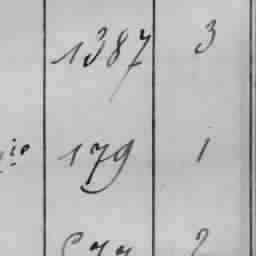 1387 3
io 179 1